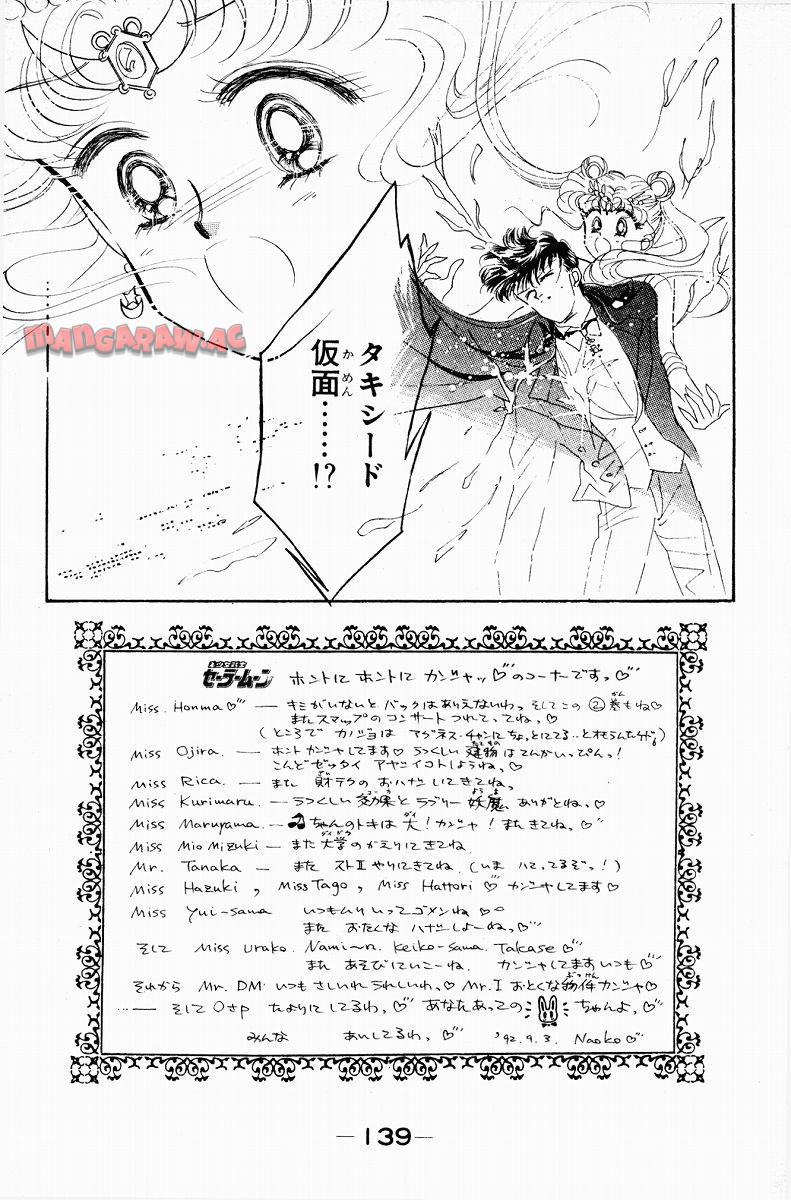 タキシード
仮面……!?
かめん
MANGARAW.AC
美少女戦士
セーラームーン ホントに ホントに カンシャッ♡のコーナーですっ♡
Miss. Honma♡ — キミがいないと バックはありえないわっ そしてこの ② 巻もね♡
また スマップの コンサート つれてってね。♡
(ところで カノジョは アグネス・チャンに ちょっとにてる‥と
Miss Ojira. — ホント カンシャしてます♡ うつくしい 建物は てんかいっぴんっ!
こんど ゼッタイ アヤシイコトしようね。
Miss Rica. — また 財テクの おハナシ しにきてね。
Miss Kurimaru. — うつくしい 効果と ラブリー 妖魔、ありがとね。♡
Miss Maruyama. — ちゃんのトキは 大! カンシャ! また きてね。♡
Miss Mio Mizuki — また 大学の かえりにきてね.
Mr. Tanaka — また ストⅡ やりにきてね. (いま ハマってるぞっ!)
Miss Hazuki , Miss Tago , Miss Hattori ♡ カンシャしてます♡
Miss Yui-sama いつもムリいって ゴメンね♡
また おたくな ハナシ しよーねっ♡
そして Miss Urako. Nami〜n. Keiko-sama. Takase ♡
また あそびにいこーね. カンシャしてます いつも♡
それから Mr. DM いつも さしいれ うれしいわ。♡ Mr. I おとくな 物件 カンシャ♡
— そして Oさp たよりに してるわ。♡ あなたあっての ちゃんよ。♡
みんな あいしてるわ。♡ '92. 9. 3. Naoko♡
— 139 —